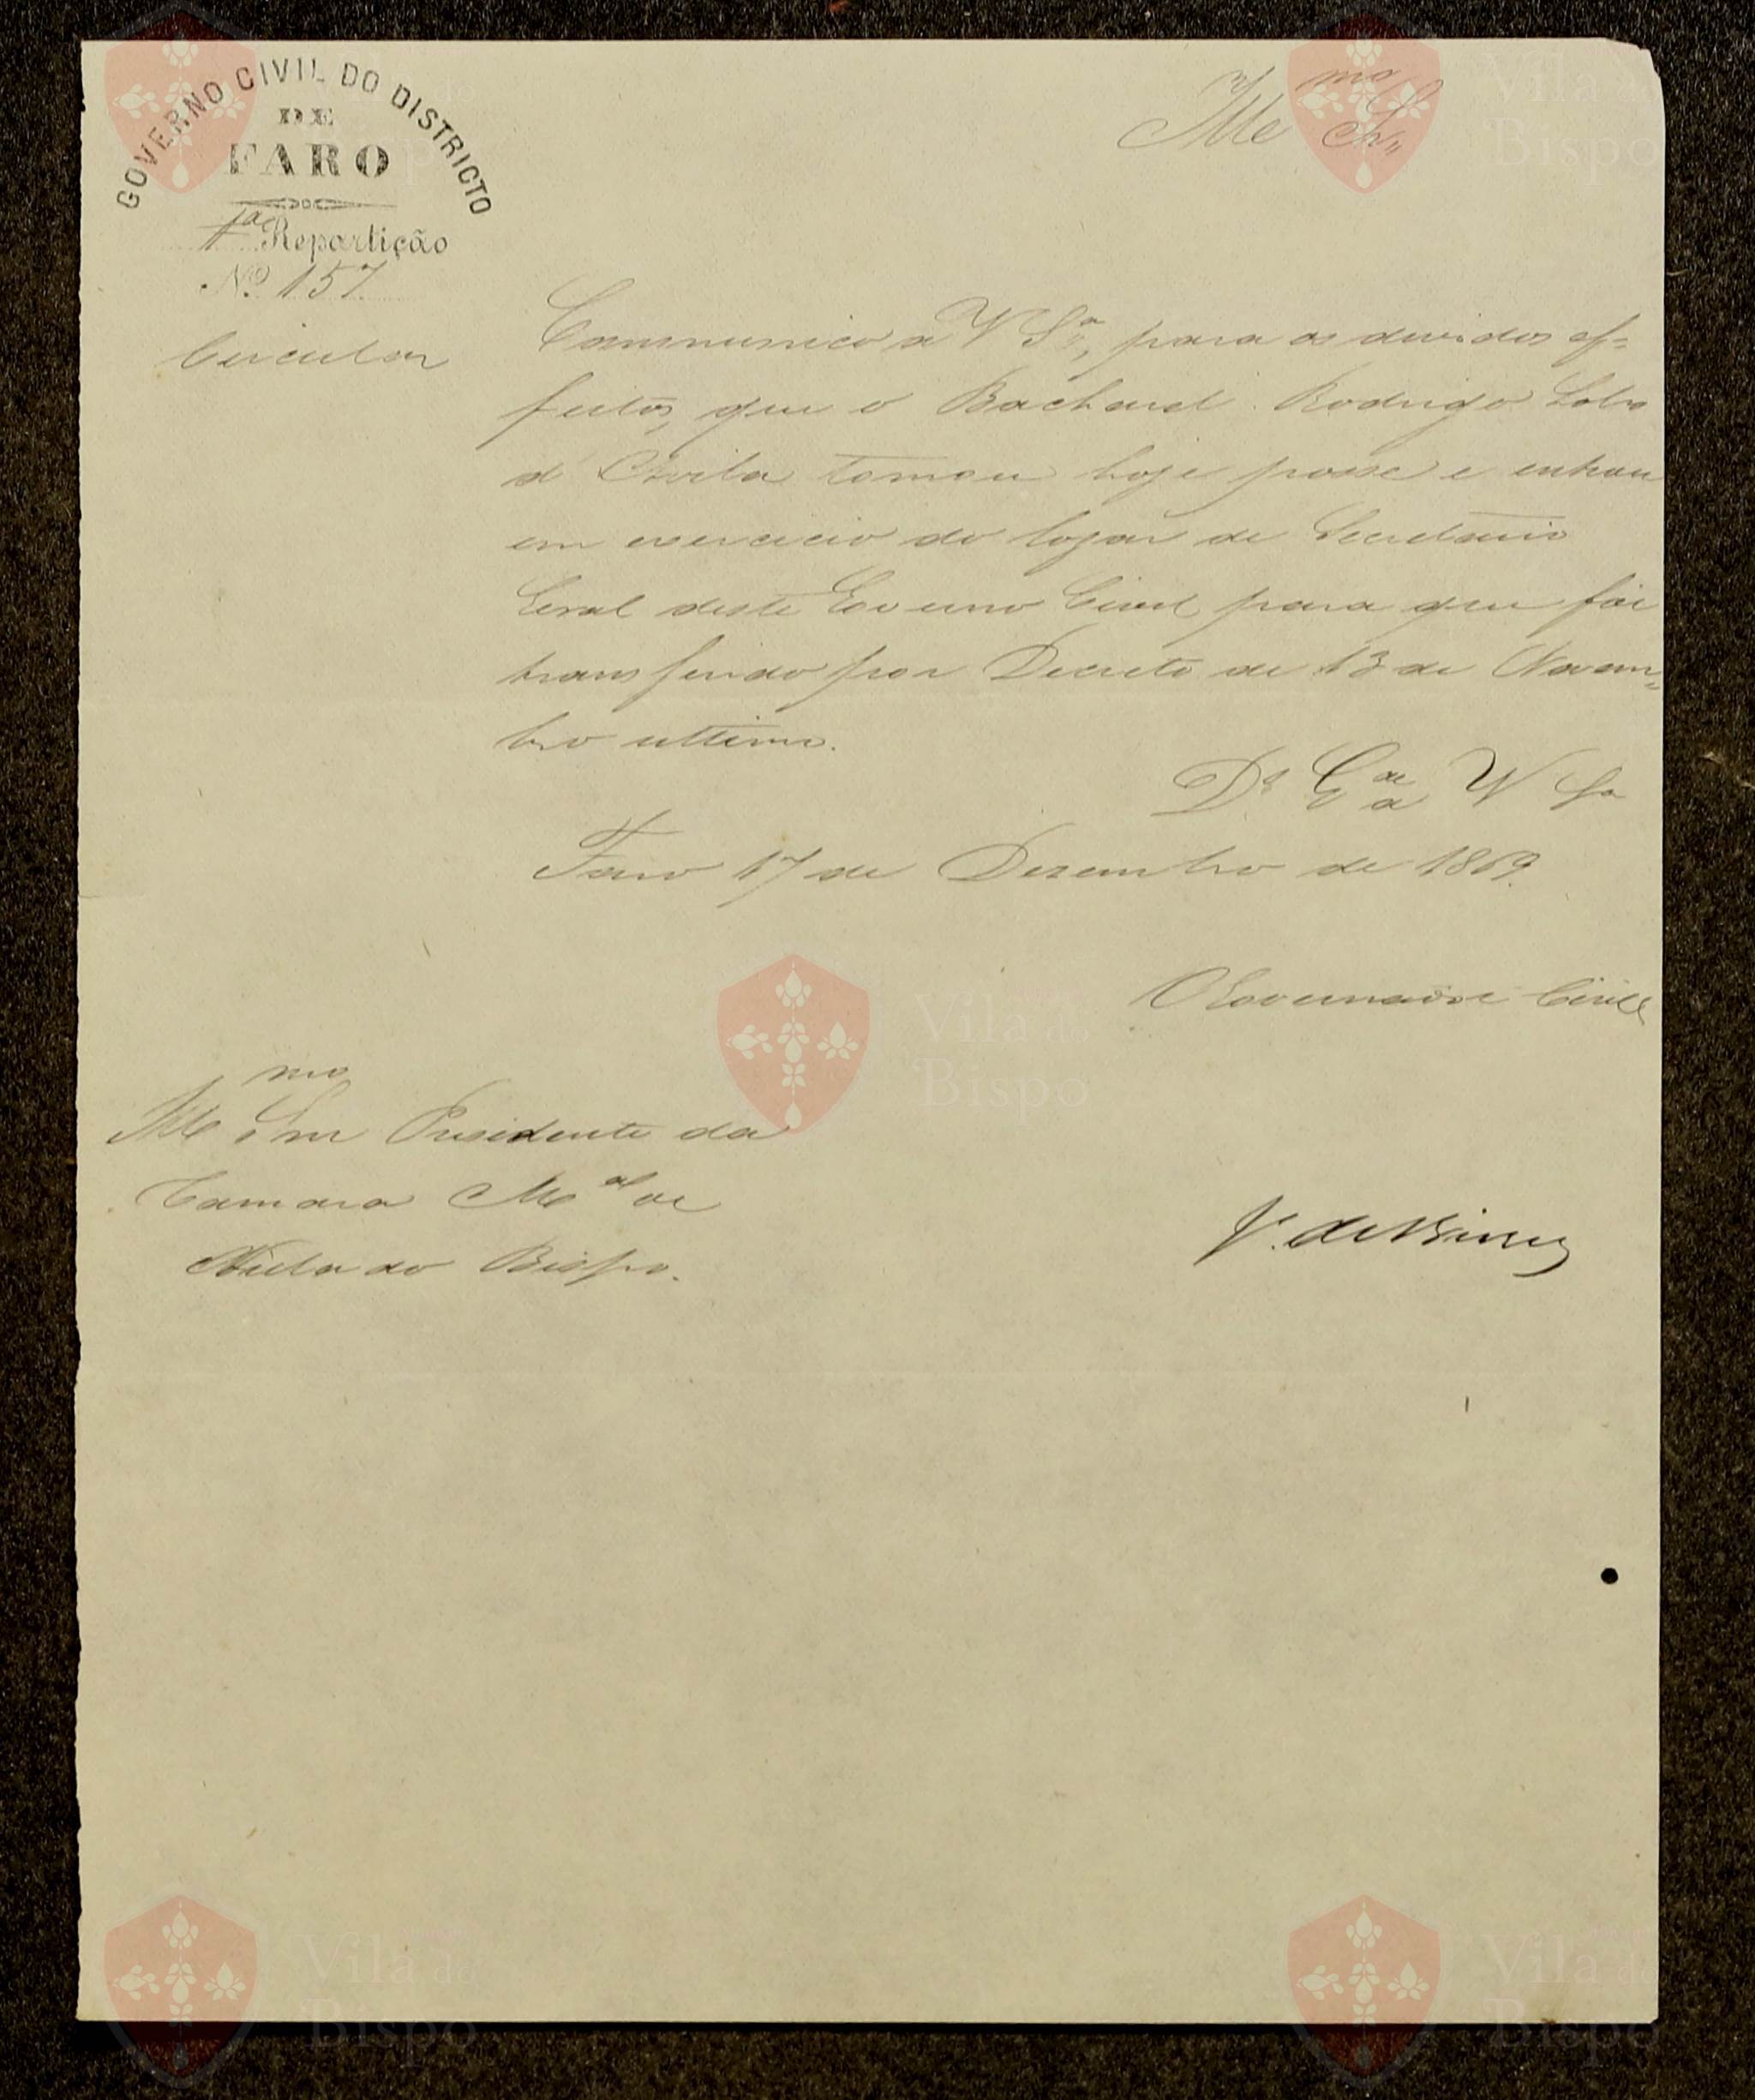 GOVERNO CIVIL DO DISTRICTO
DE
FARO
1ª Repartição
Nº 157
Circular
Illmo Snr
Communico a V Sª, para os devidos ef=
feitos, que o Bacharel Rodrigo Lobo
d'Avila tomou hoje posse e entrou
em exercicio do logar de Secretario
Geral deste Governo Civil para que foi
transferido por Decreto de 13 de Novem=
bro ultimo.
Ds Gde a V Sa
Faro 17 de Dezembro de 1869.
O Governador Civil
Illmo Snr Presidente da
Camara Mal de
Villa do Bispo.
V. de
Vila do
Bispo